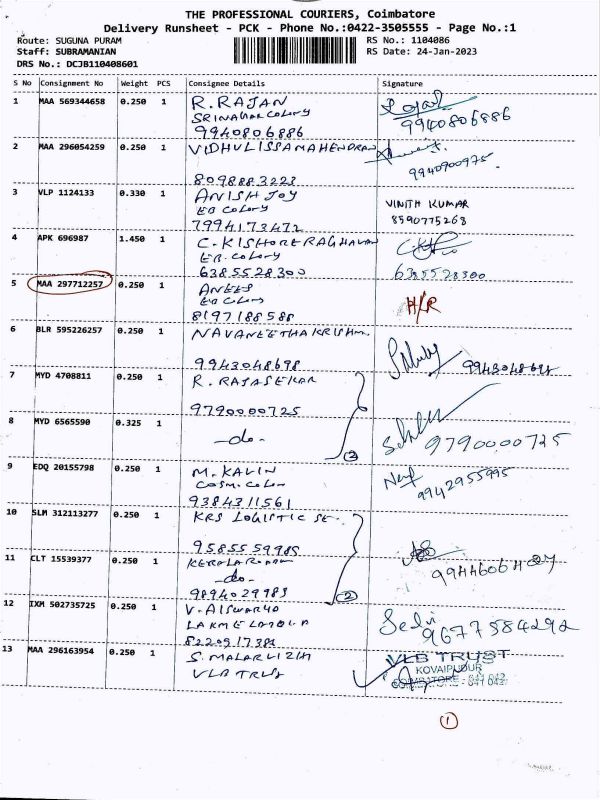 THE PROFESSIONAL COURIERS, Coimbatore
Delivery Runsheet - PCK - Phone No.:0422-3505555 - Page No.:1
Route: SUGUNA PURAM
RS No.: 1104086
Staff: SUBRAMANIAN
RS Date: 24-Jan-2023
DRS No.: DCJB110408601
S No Consignment No Weight PCS Consignee Details Signature
1 MAA 569344658 0.250 1 R. RAJAN
SRINAGAR COLONY
9940806886 9940806886
2 MAA 296054259 0.250 1 VIDHULISSAMAHENDRAN
8098883223 9940900975
3 VLP 1124133 0.330 1 ANISH JOY
EB COLONY VINITH KUMAR
7994173472 8590775268
4 APK 696987 1.450 1 C. KISHORE RAGHAVAN
EB. COLONY
6385528300 6385528300
5 MAA 297712257 0.250 1 ANEES
EB COLONY H/R
8197188588
6 BLR 595226257 0.250 1 NAVANEETHAKRISHN.
9943048698
7 MYD 4708811 0.250 1 R. RAJASEKAR
9790000725
8 MYD 6565590 0.325 1 -do- 9790000725
3
9 EDQ 20155798 0.250 1 M. KALIN
9384311561 9942955995
10 SLM 312113277 0.250 1 KRS LOGISTIC SE-
9585559985
11 CLT 15539377 0.250 1
-do-
9894029983
2
12 IXM 502735725 0.250 1 V. AISWARYA
Selvi
9677584292
13 MAA 296163954 0.250 1 S. MALARVIZHI
VLB TRUST
VLB TRUST
KOVAIPUDUR
COIMBATORE - 641 042
1